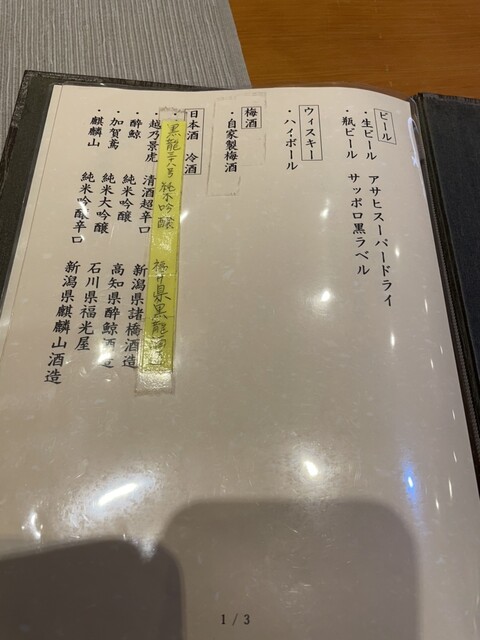 ビール
・生ビール　アサヒスーパードライ
・瓶ビール　サッポロ黒ラベル
ウィスキー
・ハイボール
梅酒
・自家製梅酒
日本酒　冷酒
・黒龍　純米吟醸　福井県黒龍酒造
・越乃景虎　清酒超辛口　新潟県諸橋酒造
・酔鯨　純米吟醸　高知県酔鯨酒造
・加賀鳶　純米大吟醸　石川県福光屋
・麒麟山　純米吟醸辛口　新潟県麒麟山酒造
1 / 3